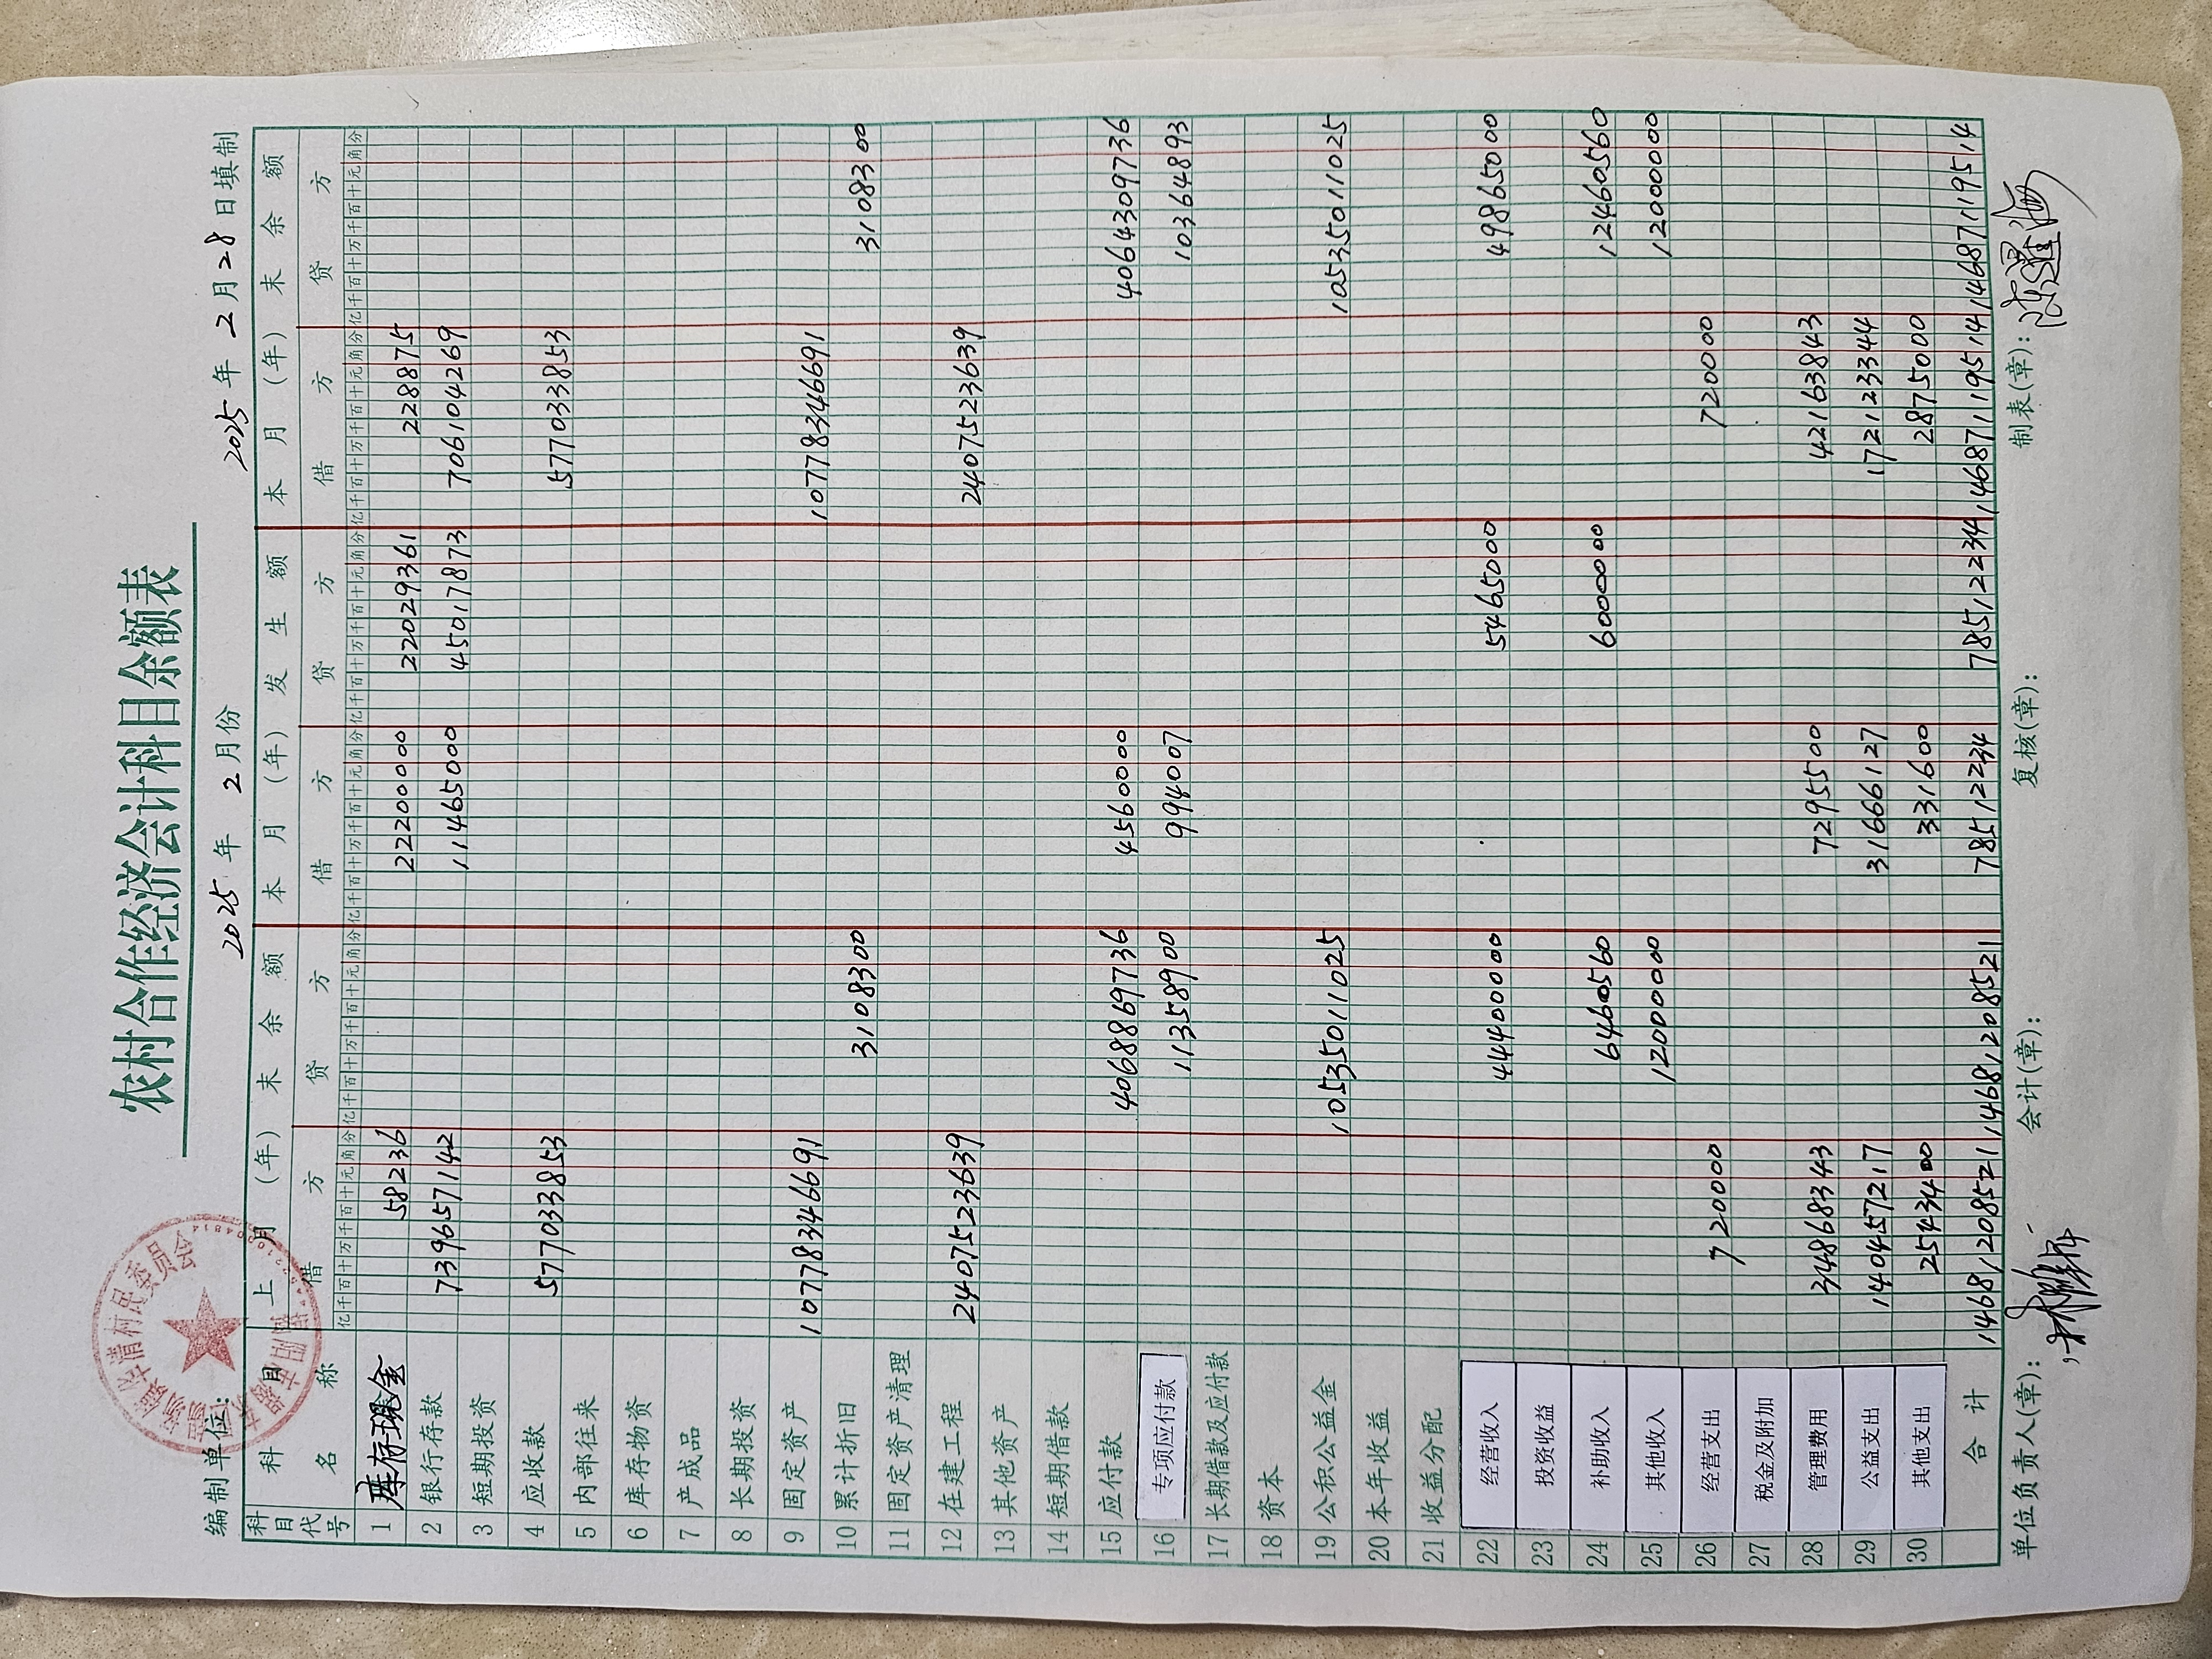 农村合作经济会计科目余额表
2025 年 2 月份
编制单位: 2025 年 2 月 28 日填制
科目代号 科目名称 上月(年)末余额 本月(年)发生额 本月(年)末余额
借方 贷方 借方 贷方 借方 贷方
亿千百十万千百十元角分 亿千百十万千百十元角分 亿千百十万千百十元角分 亿千百十万千百十元角分 亿千百十万千百十元角分 亿千百十万千百十元角分
1 库存现金 58236 22200000 22029361 228875
2 银行存款 739657142 11465000 45017873 706104269
3 短期投资
4 应收款 577033853 577033853
5 内部往来
6 库存物资
7 产成品
8 长期投资
9 固定资产 10778346691 10778346691
10 累计折旧 3108300 3108300
11 固定资产清理
12 在建工程 2407523639 2407523639
13 其他资产
14 短期借款
15 应付款 4068869736 4560000 4064309736
16 专项应付款 11358900 994007 10364893
17 长期借款及应付款
18 资本
19 公积公益金 10535011025 10535011025
20 本年收益
21 收益分配
22 经营收入 44400000 5465000 49865000
23 投资收益
24 补助收入 6460560 6000000 12460560
25 其他收入 12000000 12000000
26 经营支出 720000 720000
27 税金及附加
28 管理费用 34868343 7295500 42163843
29 公益支出 140457217 31666127 172123344
30 其他支出 2543400 331600 2875000
合计 14681208521 14681208521 78512234 78512234 14687119514 14687119514
单位负责人(章): 会计(章): 复核(章): 制表(章):